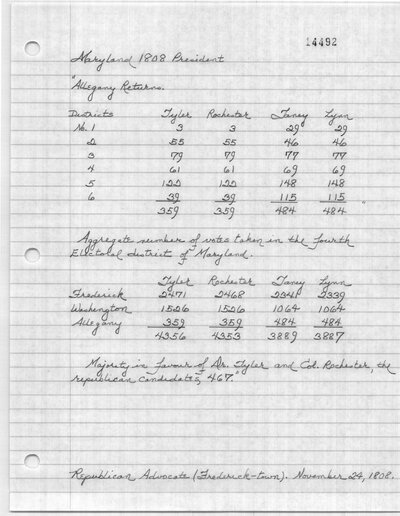 14492
Maryland 1808 President
"Allegany Returns.
Districts Tyler Rochester Taney Lynn
No. 1 3 3 29 29
2 55 55 46 46
3 79 79 77 77
4 61 61 69 69
5 122 122 148 148
6 39 39 115 115
359 359 484 484 "
Aggregate number of votes taken in the fourth
Electoral district of Maryland.
Tyler Rochester Taney Lynn
Frederick 2471 2468 2341 2339
Washington 1526 1526 1064 1064
Allegany 359 359 484 484
4356 4353 3889 3887
Majority in favour of Dr. Tyler and Col. Rochester, the
republican candidates, 467."
Republican Advocate (Frederick-town). November 24, 1808.